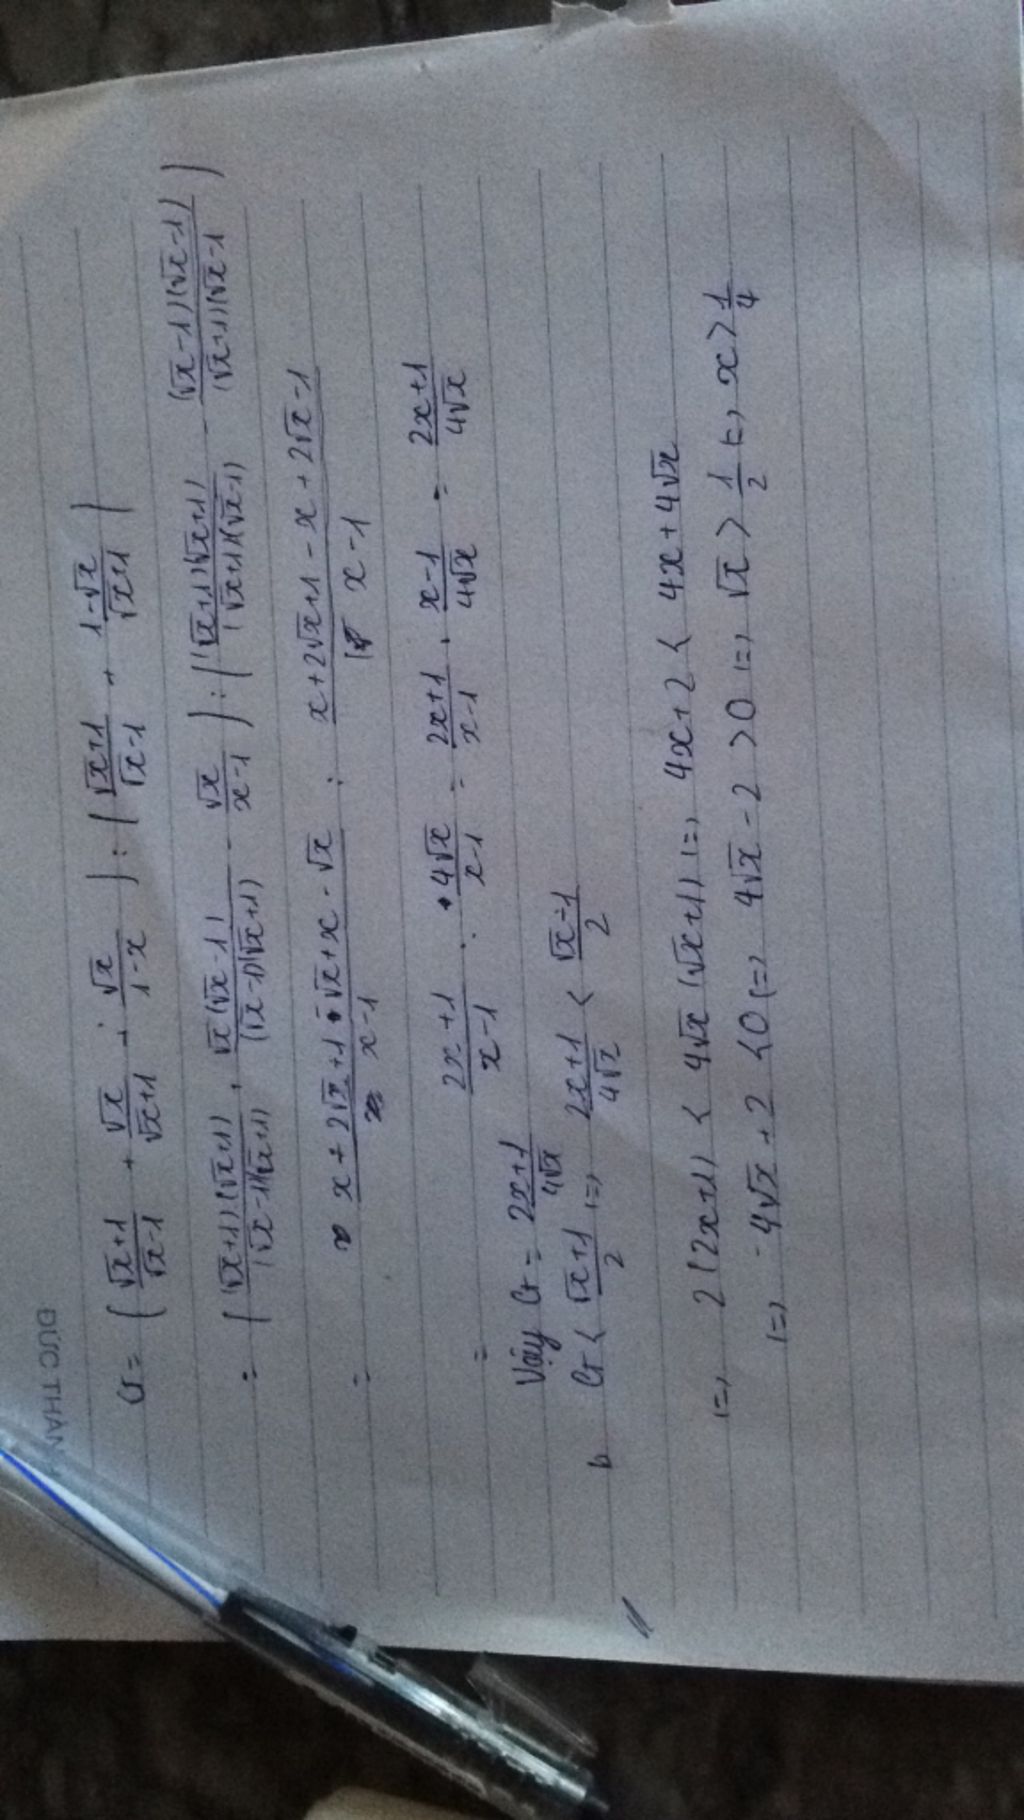 ĐỨC THÀN
G = ( (√x+1)/(√x-1) + √x/(√x+1) + √x/(1-x) ) : ( (√x+1)/(√x-1) + (1-√x)/(√x+1) )
= ( (√x+1)(√x+1)/(√x-1)(√x+1) + √x(√x-1)/(√x-1)(√x+1) - √x/(x-1) ) : ( (√x+1)(√x+1)/(√x+1)(√x-1) - (√x-1)(√x-1)/(√x+1)(√x-1 )
= (x+2√x+1-√x+x-√x)/(x-1) : (x+2√x+1-x+2√x-1)/(x-1)
= (2x+1)/(x-1) : 4√x/(x-1) = (2x+1)/(x-1) . (x-1)/(4√x) = (2x+1)/(4√x)
Vậy G = (2x+1)/(4√x)
b G < (√x+1)/2 (=) (2x+1)/(4√x) < (√x-1)/2
(=) 2(2x+1) < 4√x(√x+1) (=) 4x+2 < 4x+4√x
(=) -4√x+2 <0 (=) 4√x-2 >0 (=) √x > 1/2 (=) x > 1/4